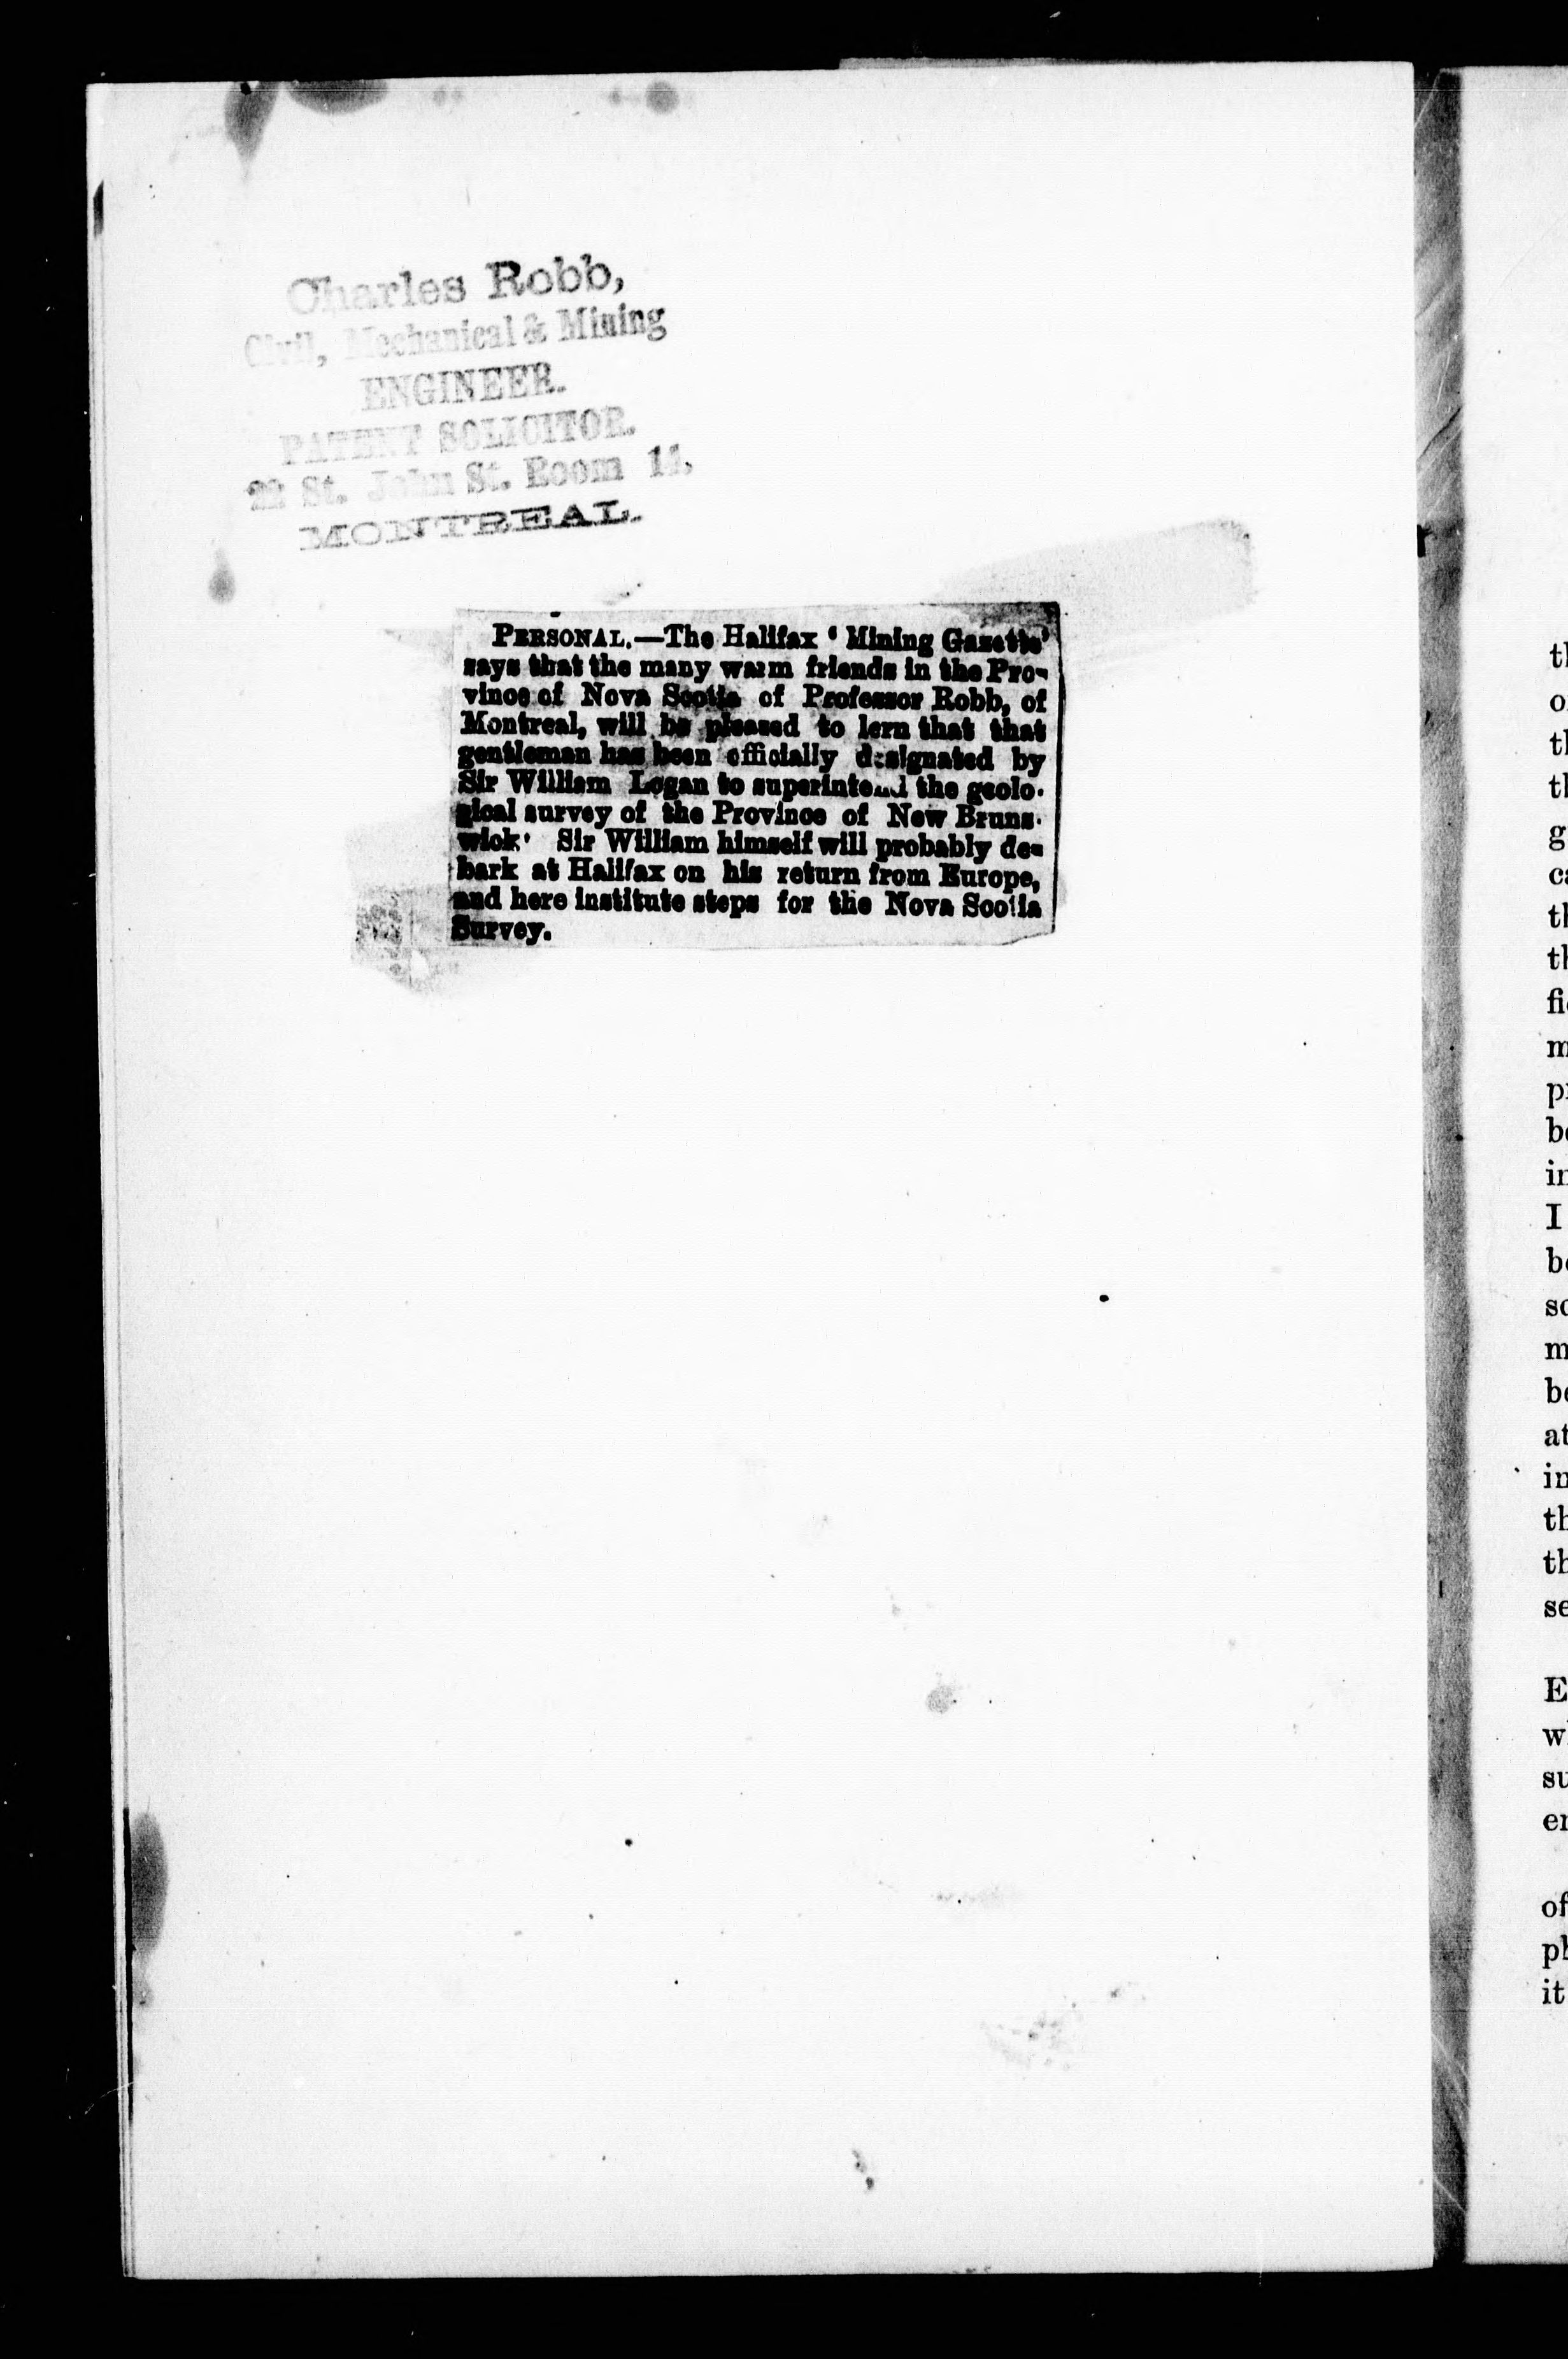 Charles Robb,
Civil, Mechanical & Mining
ENGINEER.
PATENT SOLICITOR.
22 St. John St. Room
MONTREAL.
PERSONAL.—The Halifax ‘Mining Gazette’
says that the many warm friends in the Pro-
vince of Nova Scotia of Professor Robb, of
Montreal, will be pleased to lern that that
gentleman has been officially designated by
Sir William Logan to superintend the geolo-
gical survey of the Province of New Bruns-
wick' Sir William himself will probably de-
bark at Halifax on his return from Europe,
and here institute steps for the Nova Scotia
Survey.